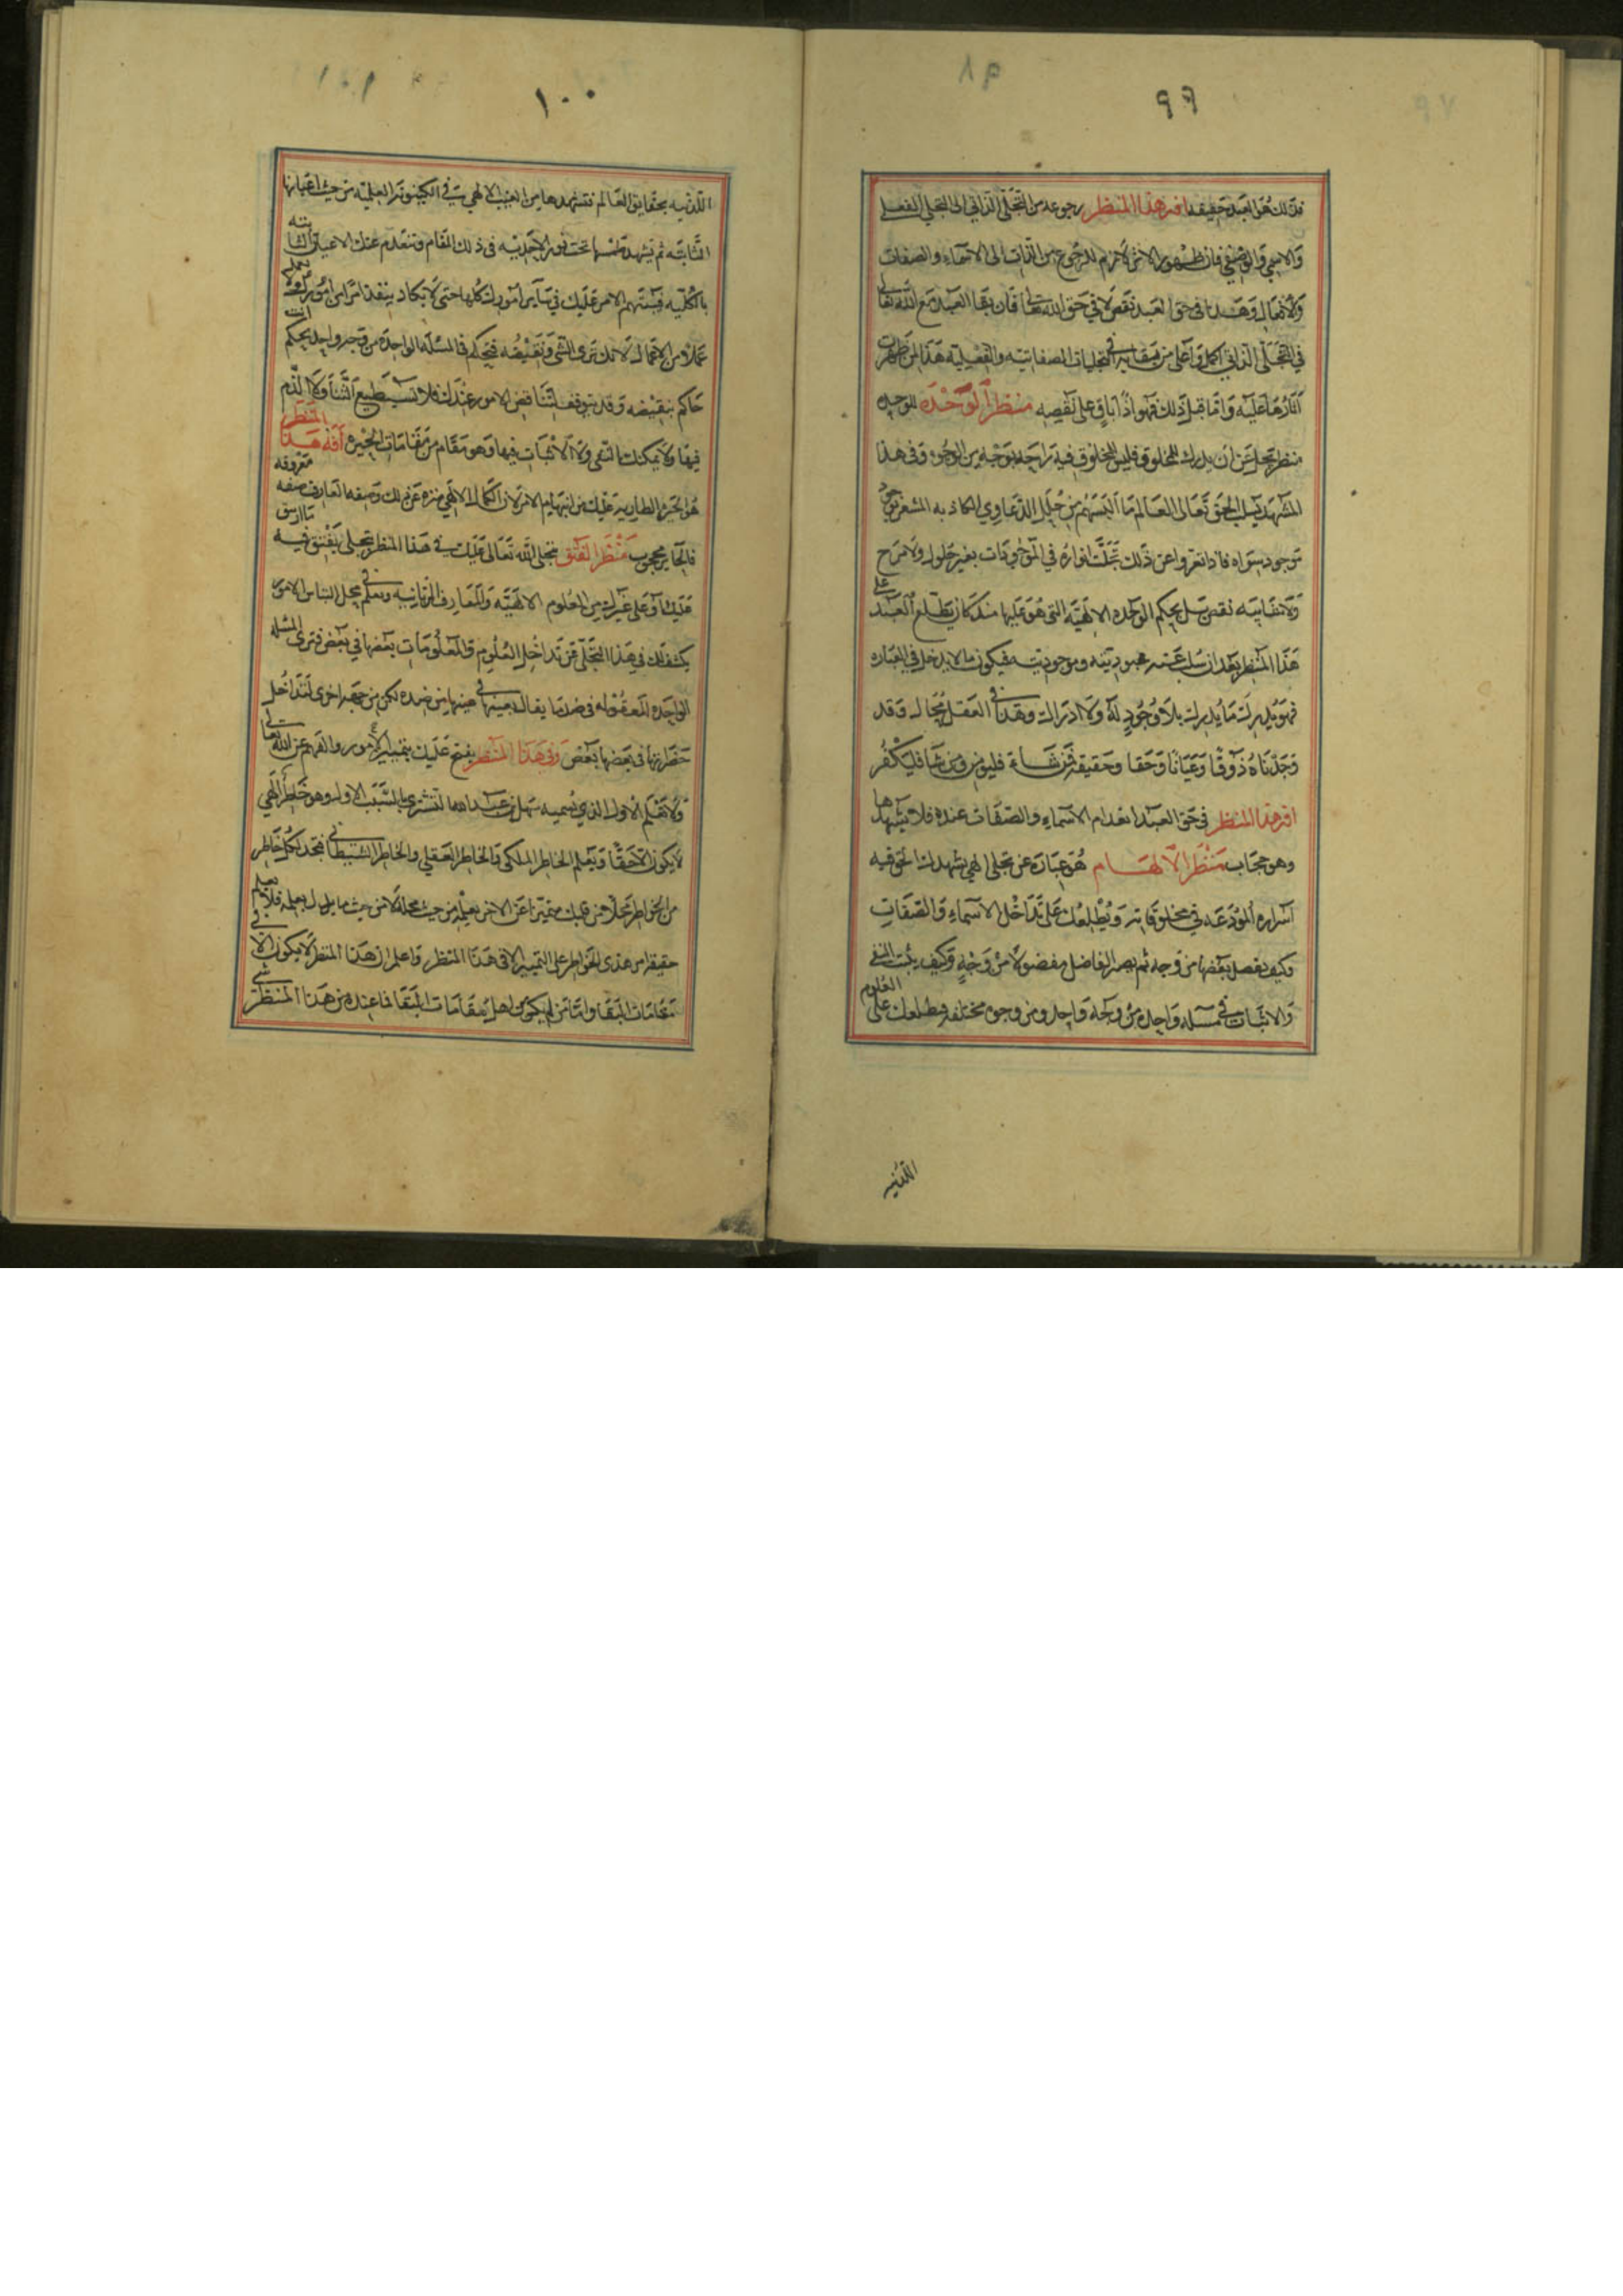 ٩٩
فذلك هو العبد حقيقة افة هذا المنظر رجوعه من التجلي الذاتي الى التجلي الفعلي
والاسمي والوصفي فان ظهور الاثر لازم للرجوع من الذات الى الاسماء والصفات
والافعال وهذا في حق العبد نقص لا في حق الله تعالى فان بقا العبد مع الله تعالى
في التجلي الذاتي اكمل واعلى من بقايه في تجليات الصفاتيه والفعليه هذا لمن ظهرت
اثارها عليه واما قبل ذلك فهو اذًا باق على نقصه منظر الوحدة للوحده
منظر تجل عن ان يدرك للمخلوق فليس للمخلوق فيه رايحه بوجه من الوجوه وفي هذا
المشهد يسلب الحق تعالى العالم ما البسهم من حلل الدعاوي الكاذبه المشعر بوجود
موجود سواه فاذا تعروا عن ذلك تجلت انواره في الموجودات بغير حلول ولا مزح
ولا نقايته نقص بل بحكم الوحده الالهيه التي هو عليها منذ كان يطلع العبد على
هذا المنظر بعد ان سلب عنه عبوديته وموجوديته فيكون ما لا يدخل في العباره
فهو يدرك ما يدرك بلا وجود له ولا ادراك وهذا في العقل محال وقد
وجدناه ذوقا وعيانا وحقا وحقيقة فمن شاء فليؤمن ومن شا فليكفر
افة هذا المنظر في حق العبد انعدام الاسماء والصفات عنده فلا يشهدها
وهو حجاب منظر الالهام هو عباره عن تجلي الهي يشهدك الحق فيه
اسراره المودعه في مخلوقاته ويطلعك على تداخل الاسماء والصفات
وكيف يفضل بعضها من وجه ثم يصير الفاضل مفضولا من وجهٍ وكيف يثبت النفي
والاثبات في مسئله واحده من وجه واحد ومن وجوه مختلفه فيطلعك على العلوم
اللدنيه
١٠٠
اللدنيه بحقايق العالم فتشهدها من الغيب الالهي في الكينونة العلميه من حيث اعيانها
الثابته ثم يشهد طمسها تحت نور الاحديه في ذلك المقام وتنعدم عنك الاعيان الثابته
بالكليه فيستبهم الامر عليك في ساير امورك كلها حتى لا تكاد ينفذ امرًا من امورك ولا تعلم
عملا من الاعمال لانك ترى الشي ونقيضه فتحكم في المسئله الواحدة من وجه واحد بحكم انت
حاكم بنقيضه وقد يتوقف لتناقض الامور عندك فلا تستطيع الثنا ولا الذم
فيها ولا يمكنك النفي ولا الاثبات فيها وهو مقام من مقامات الحيره افة هذا المنظر
هو الحيره الطاريه عليك من انبهام الامر لان الكمال الالهي منزه عن ذلك وصفه العارف صفه معروفه
فالحاير محجوب منظر الفتق يتجلى الله تعالى عليك في هذا المنظر بتجلي يفتق فيه ما ارتتق
عليك وعلى غيرك من العلوم الالهيه والمعارف الربانيه وتعلم في محل التباس الامور
يكشف لك في هذا التجلي عن تداخل العلوم والمعلومات بعضها في بعض فترى المسئله
الواحده المعقوله في ضد ما يقال بعينها في عينها من ضده لكن من جهة اخرى لتداخل
حضراتها في بعضها بعض وفي هذا المنظر يفتح عليك بتمييز الامور والفهم عن الله تعالى
وتعلم الاول الذي يسميه سهل بن عبد الله التستري بالسبب الاول وهو خاطر الهي
لا يكون الا حقًا وتعلم الخاطر الملكي والخاطر العقلي والخاطر الشيطاني فتجد لكل خاطر
من الخواطر محلا من قلبك متميزا عن الاخر بعلمه من حيث محله لا من حيث ما يدل بعمله فلا يعلم
حقيقة امر هذي الخواطر على التمييز الا في هذا المنظر واعلم ان هذا المنظر لا يكون الا في
مقامات البقا واما من لم يكون اهل مقامات البقا فما عنده من هذا المنظر شي